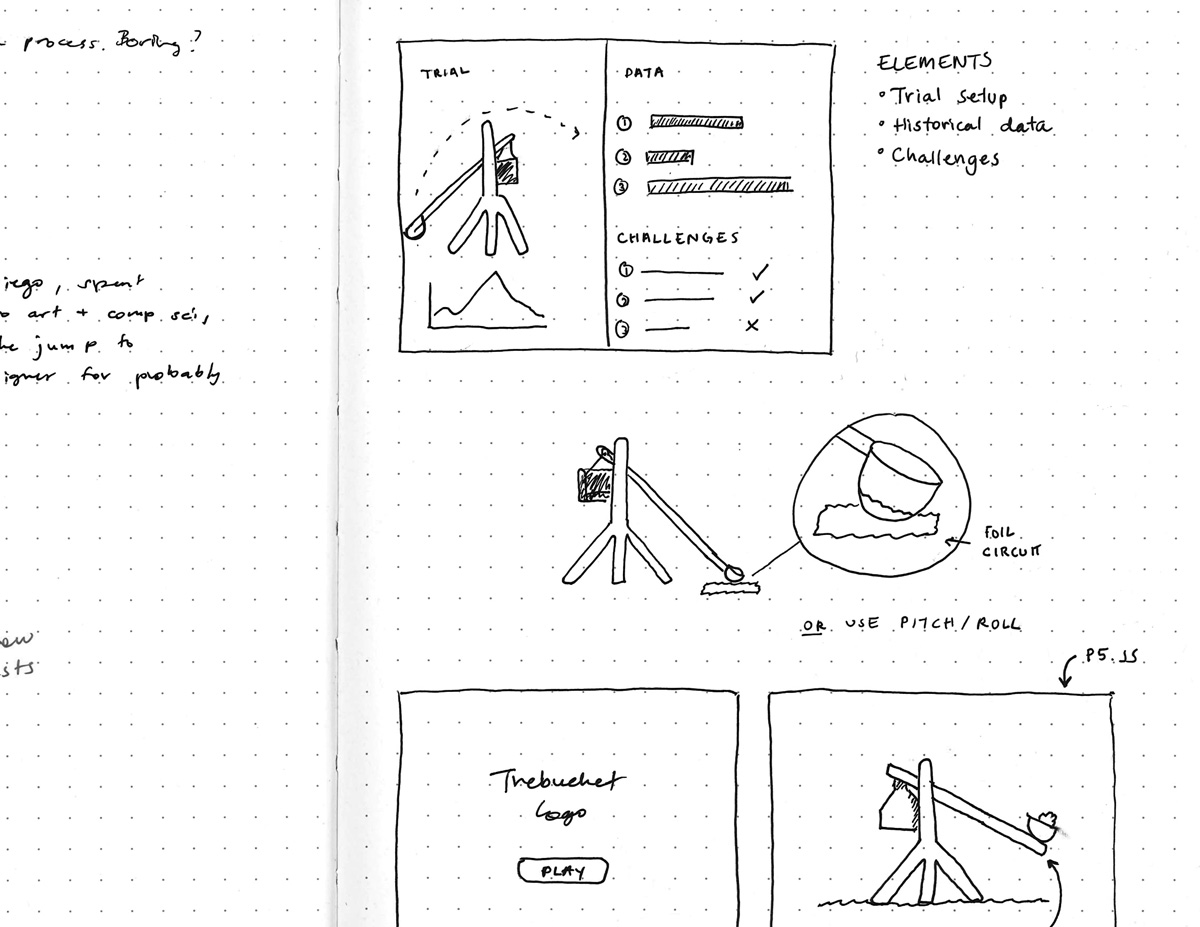 process. Boring?
iego, spent
art + comp sci,
he jump to
igner for probably
ew
sits
TRIAL
DATA
1
2
3
CHALLENGES
1
2
3
ELEMENTS
• Trial setup
• Historical data
• Challenges
FOIL
CIRCUIT
OR USE PITCH/ROLL
P5.JS
Trebuchet
Logo
PLAY